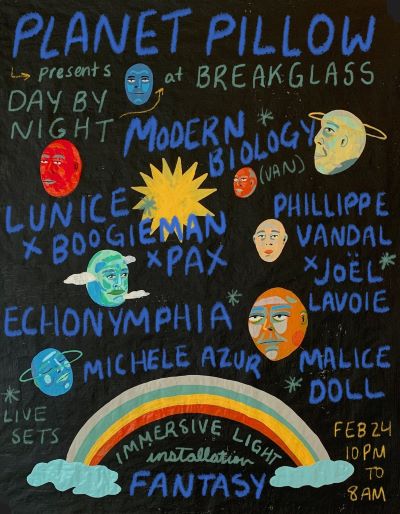 PLANET PILLOW
presents
at BREAKGLASS
DAY BY
NIGHT
MODERN
BIOLOGY
(VAN)
LUNICE
x BOOGIEMAN
x PAX
PHILLIPPE
VANDAL
x JOËL
LAVOIE
ECHONYMPHIA
* MICHELE AZUR
MALICE
* DOLL
* LIVE
SETS
IMMERSIVE LIGHT
installation
FANTASY
FEB 24
10 PM
TO
8 AM